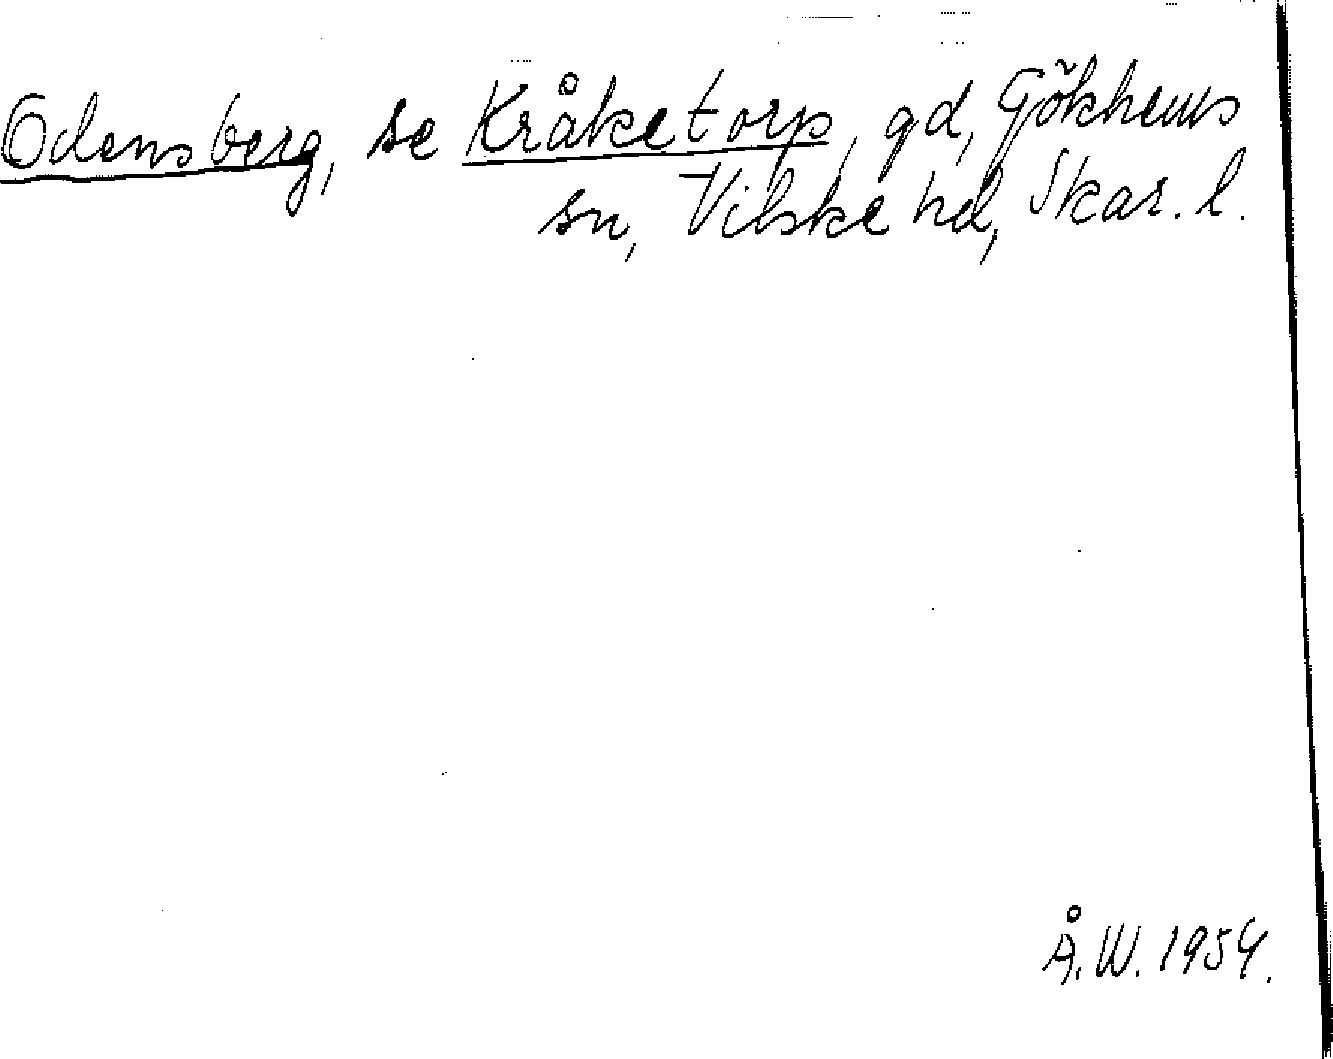 Odensberg, se Kråketorp, gd, Gökhems
sn, Vilske hd, Skar. l.
Å.W. 1954.